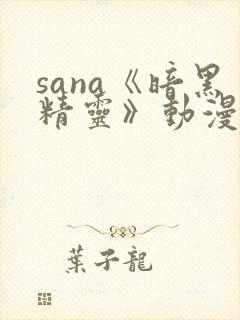 sana《暗黑
精靈》動漫
葉子龍